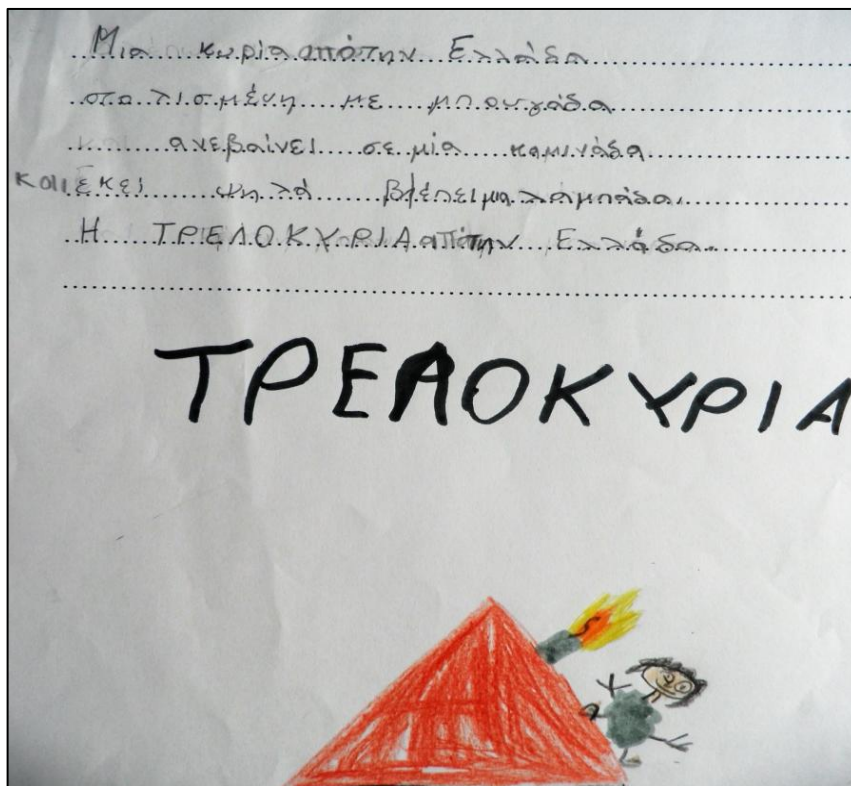 Μια κυρία από την Ελλάδα
στολισμένη με μπουγάδα
ανεβαίνει σε μία καμινάδα
και Εκεί ψηλά βλέπει μια λαμπάδα.
Η ΤΡΕΛΟΚΥΡΙΑ από την Ελλάδα.
ΤΡΕΛΟΚΥΡΙΑ